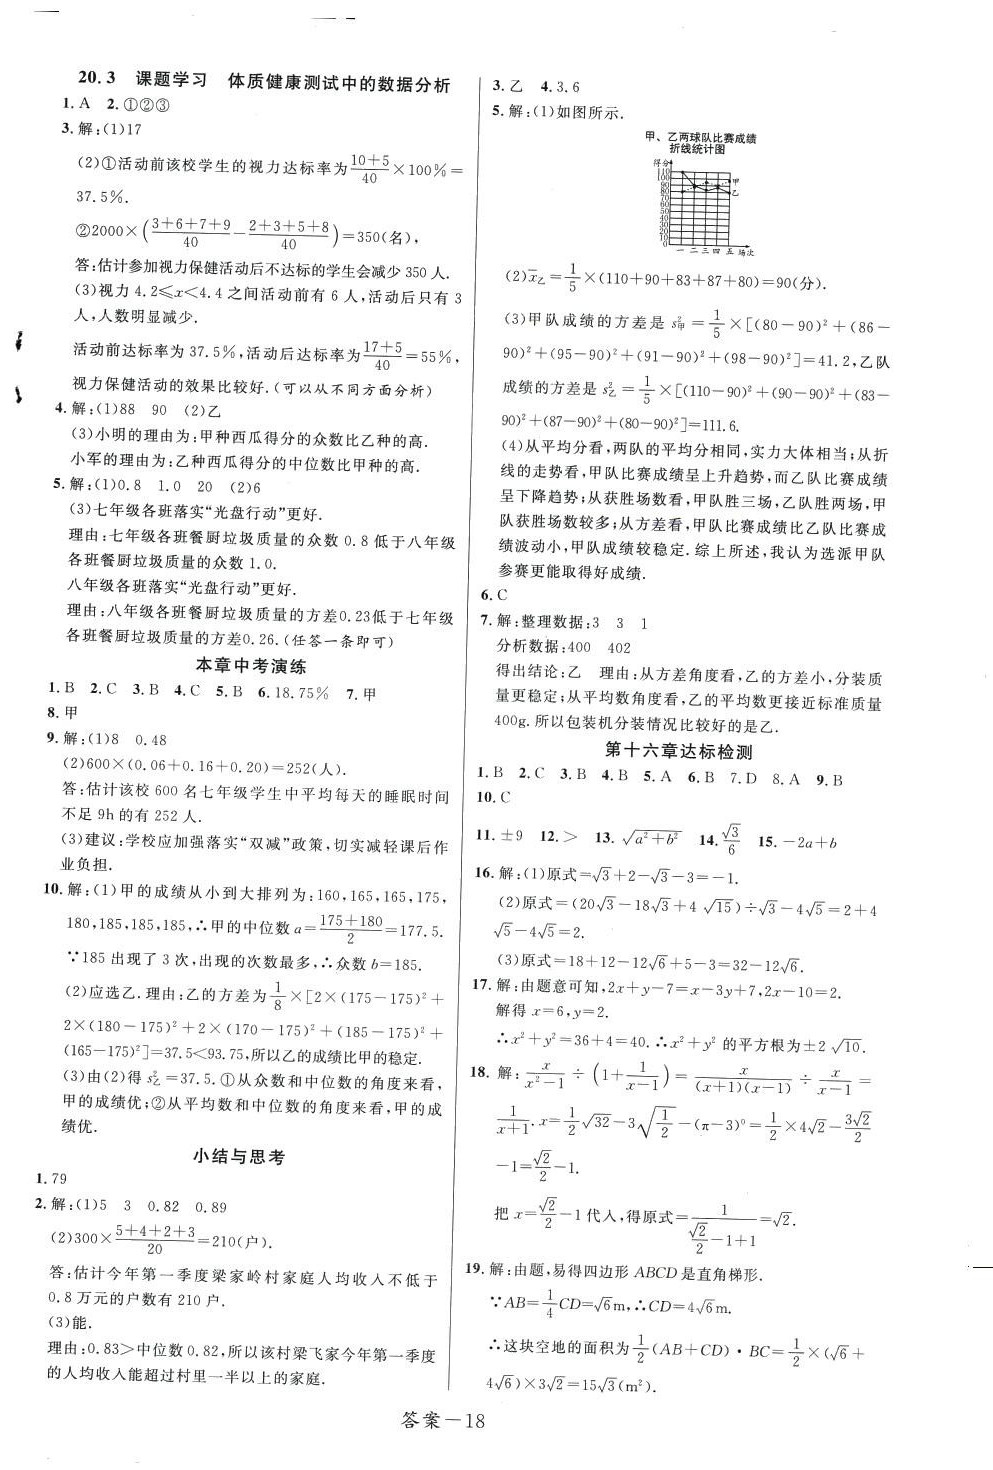 20.3 课题学习 体质健康测试中的数据分析
1. A 2. ①②③
3. 解:(1)17
(2)①活动前该校学生的视力达标率为\frac{10+5}{40}×100%=
37.5%.
②2000×(\frac{3+6+7+9}{40}-\frac{2+3+5+8}{40})=350(名),
答:估计参加视力保健活动后不达标的学生会减少 350 人.
(3)视力 4.2≤x<4.4 之间活动前有 6 人,活动后只有 3
人,人数明显减少.
活动前达标率为 37.5%,活动后达标率为\frac{17+5}{40}=55%,
视力保健活动的效果比较好.(可以从不同方面分析)
4. 解:(1)88 90 (2)乙
(3)小明的理由为:甲种西瓜得分的众数比乙种的高.
小军的理由为:乙种西瓜得分的中位数比甲种的高.
5. 解:(1)0.8 1.0 20 (2)6
(3)七年级各班落实“光盘行动”更好.
理由:七年级各班餐厨垃圾质量的众数 0.8 低于八年级
各班餐厨垃圾质量的众数 1.0.
八年级各班落实“光盘行动”更好.
理由:八年级各班餐厨垃圾质量的方差0.23低于七年级
各班餐厨垃圾质量的方差0.26.(任答一条即可)
本章中考演练
1. B 2. C 3. B 4. C 5. B 6. 18.75% 7. 甲
8. 甲
9. 解:(1)8 0.48
(2)600×(0.06+0.16+0.20)=252(人).
答:估计该校 600 名七年级学生中平均每天的睡眠时间
不足 9h 的有 252 人.
(3)建议:学校应加强落实“双减”政策,切实减轻课后作
业负担.
10. 解:(1)甲的成绩从小到大排列为:160,165,165,175,
180,185,185,185,∴甲的中位数 a=\frac{175+180}{2}=177.5.
∵185 出现了 3 次,出现的次数最多,∴众数 b=185.
(2)应选乙.理由:乙的方差为\frac{1}{8}×[2×(175-175)²+
2×(180-175)²+2×(170-175)²+(185-175)²+
(165-175)²]=37.5<93.75,所以乙的成绩比甲的稳定.
(3)由(2)得 s²乙=37.5.①从众数和中位数的角度来看,
甲的成绩优;②从平均数和中位数的角度来看,甲的成
绩优.
小结与思考
1. 79
2. 解:(1)5 3 0.82 0.89
(2)300×\frac{5+4+2+3}{20}=210(户).
答:估计今年第一季度梁家岭村家庭人均收入不低于
0.8 万元的户数有 210 户.
(3)能.
理由:0.83>中位数 0.82,所以该村梁飞家今年第一季度
的人均收入能超过村里一半以上的家庭.
3. 乙 4. 3.6
5. 解:(1)如图所示.
甲、乙两球队比赛成绩
折线统计图
得分
110
100
90
80
70
60
50
40
30
20
10
0
甲
乙
一 二 三 四 五 场次
(2)x̄乙=\frac{1}{5}×(110+90+83+87+80)=90(分).
(3)甲队成绩的方差是 s²甲=\frac{1}{5}×[(80-90)²+(86-
90)²+(95-90)²+(91-90)²+(98-90)²]=41.2,乙队
成绩的方差是 s²乙=\frac{1}{5}×[(110-90)²+(90-90)²+(83-
90)²+(87-90)²+(80-90)²]=111.6.
(4)从平均分看,两队的平均分相同,实力大体相当;从折
线的走势看,甲队比赛成绩呈上升趋势,而乙队比赛成绩
呈下降趋势;从获胜场数看,甲队胜三场,乙队胜两场,甲
队获胜场数较多;从方差看,甲队比赛成绩比乙队比赛成
绩波动小,甲队成绩较稳定.综上所述,我认为选派甲队
参赛更能取得好成绩.
6. C
7. 解:整理数据:3 3 1
分析数据:400 402
得出结论:乙 理由:从方差角度看,乙的方差小,分装质
量更稳定;从平均数角度看,乙的平均数更接近标准质量
400g.所以包装机分装情况比较好的是乙.
第十六章达标检测
1. B 2. C 3. B 4. B 5. A 6. B 7. D 8. A 9. B
10. C
11. ±9 12. > 13. √(a²+b²) 14. \frac{√3}{6} 15. -2a+b
16. 解:(1)原式=√3+2-√3-3=-1.
(2)原式=(20√3-18√3+4√15)÷√3-4√5=2+4
√5-4√5=2.
(3)原式=18+12-12√6+5-3=32-12√6.
17. 解:由题意可知,2x+y-7=x-3y+7,2x-10=2.
解得 x=6,y=2.
∴x²+y²=36+4=40.∴x²+y² 的平方根为±2√10.
18. 解:\frac{x}{x²-1}÷(1+\frac{1}{x-1})=\frac{x}{(x+1)(x-1)}÷\frac{x}{x-1}=
\frac{1}{x+1}.x=\frac{1}{2}√32-3√\frac{1}{2}-(π-3)⁰=\frac{1}{2}×4√2-\frac{3√2}{2}
-1=\frac{√2}{2}-1.
把 x=\frac{√2}{2}-1代入,得原式=\frac{1}{\frac{√2}{2}-1+1}=√2.
19. 解:由题,易得四边形 ABCD 是直角梯形.
∵AB=\frac{1}{4}CD=√6m,∴CD=4√6m.
∴这块空地的面积为\frac{1}{2}(AB+CD)·BC=\frac{1}{2}×(√6+
4√6)×3√2=15√3(m²).
答案-18